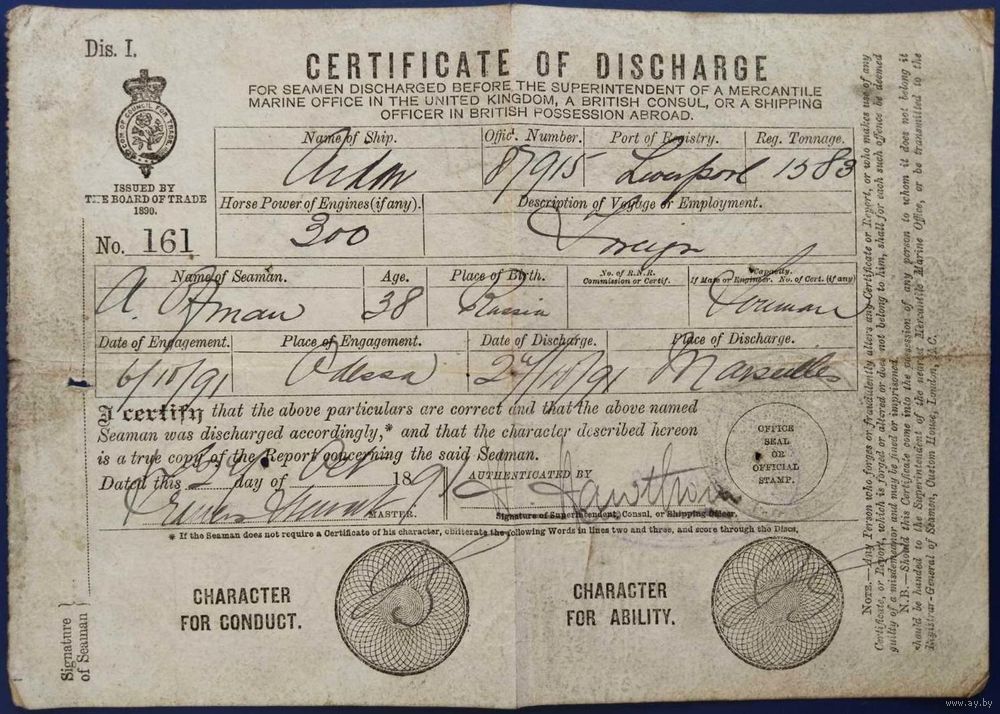 Dis. I.
CERTIFICATE OF DISCHARGE
FOR SEAMEN DISCHARGED BEFORE THE SUPERINTENDENT OF A MERCANTILE
MARINE OFFICE IN THE UNITED KINGDOM, A BRITISH CONSUL, OR A SHIPPING
OFFICER IN BRITISH POSSESSION ABROAD.
ISSUED BY
THE BOARD OF TRADE
1890.
No. 161
Name of Ship. Offic'. Number. Port of Registry. Reg. Tonnage.
87915 Liverpool 1583
Horse Power of Engines (if any). Description of Voyage or Employment.
300 Foreign
Name of Seaman. Age. Place of Birth. No. of R.N.R. Commission or Certif. Capacity. If Mate or Engineer. No. of Cert. (if any)
A. 38 Russia
Date of Engagement. Place of Engagement. Date of Discharge. Place of Discharge.
6/10/91 Odessa 24/10/91 Marseilles
I certify that the above particulars are correct and that the above named
Seaman was discharged accordingly,* and that the character described hereon
is a true copy of the Report concerning the said Seaman.
Dated this 24 day of Oct 1891
AUTHENTICATED BY
MASTER.
Signature of Superintendent, Consul, or Shipping Officer.
OFFICE
SEAL
OR
OFFICIAL
STAMP.
* If the Seaman does not require a Certificate of his character, obliterate the following Words in lines two and three, and score through the Discs.
CHARACTER
FOR CONDUCT.
CHARACTER
FOR ABILITY.
Signature
of Seaman
NOTE.—Any Person who forges or fraudulently alters any Certificate or Report, or who makes use of any
Certificate, or Report, which is forged or altered or does not belong to him, shall for each such offence be deemed
guilty of a misdemeanor and may be fined or imprisoned.
N.B.—Should this Certificate come into the possession of any person to whom it does not belong it
should be handed to the Superintendent of the nearest Mercantile Marine Office, or be transmitted to the
Registrar-General of Seamen, Custom House, London,
www.ay.by